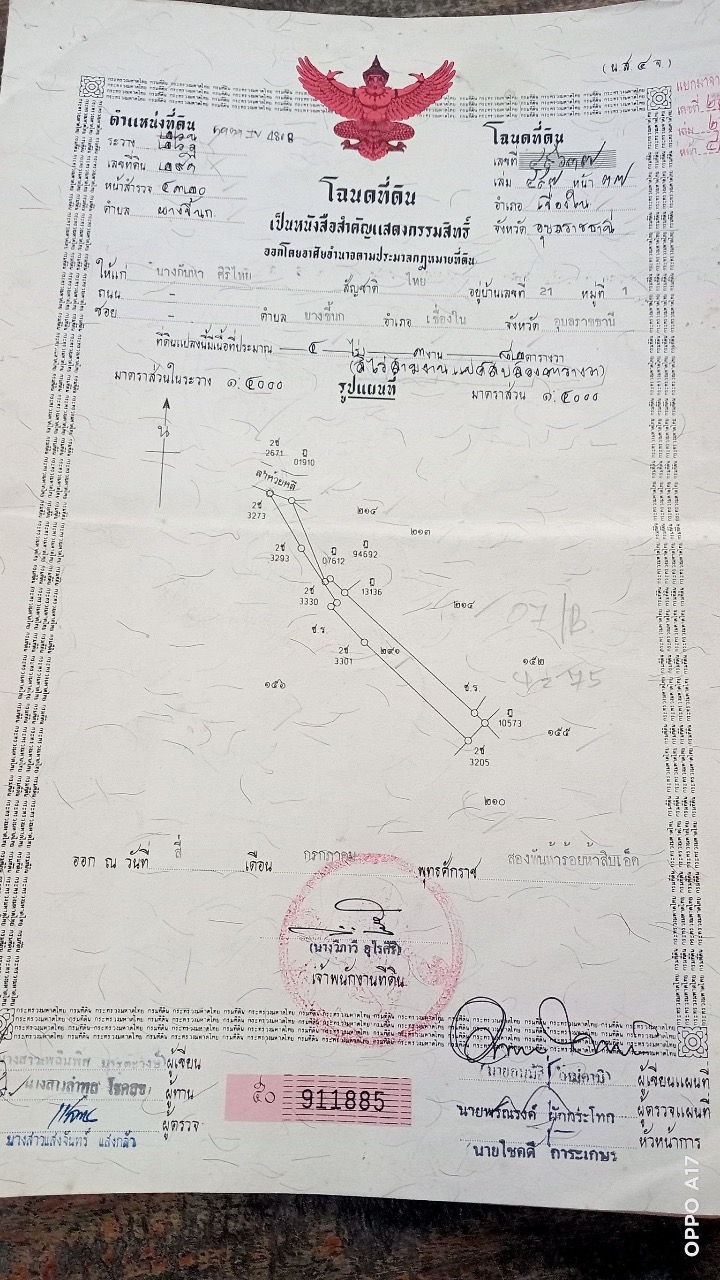 (น.ส.๔ จ.)
ตำแหน่งที่ดิน
ระวาง
เลขที่ดิน ๒๙๑
หน้าสำรวจ ๔๓๒๐
ตำบล ยางขี้นก
โฉนดที่ดิน
เลขที่
เล่ม หน้า ๓๗
อำเภอ เขื่องใน
จังหวัด อุบลราชธานี
โฉนดที่ดิน
เป็นหนังสือสำคัญแสดงกรรมสิทธิ์
ออกโดยอาศัยอำนาจตามประมวลกฎหมายที่ดิน
ให้แก่ นางกันหา ศิริไทย สัญชาติ ไทย อยู่บ้านเลขที่ 21 หมู่ที่ 1
ถนน -
ซอย - ตำบล ยางขี้นก อำเภอ เขื่องใน จังหวัด อุบลราชธานี
ที่ดินแปลงนี้มีเนื้อที่ประมาณ ๔ ไร่ ๓ งาน ๘๒ ตารางวา
(สี่ไร่สามงานแปดสิบสองตารางวา)
มาตราส่วนในระวาง ๑:๔๐๐๐ รูปแผนที่ มาตราส่วน ๑:๔๐๐๐
น
2ช
2671
ฏ
01910
ลำห้วยหลี
2ช
3273
๒๑๔
๒๑๓
2ช
3293
07612
ฏ
94692
ฏ
13136
2ช
3330
๒๑๔
ช.ร.
2ช
3301
๒๙๑
๑๕๒
๑๕๖
ช.ร.
ฏ
10573
๑๕๕
2ช
3205
๒๑๐
ออก ณ วันที่ สี่ เดือน กรกฎาคม พุทธศักราช สองพันห้าร้อยห้าสิบเอ็ด
(นางวิภาวี อุไรศิริ)
เจ้าพนักงานที่ดิน
ผู้เขียน
ผู้ทาน
ผู้ตรวจ
นางสาวแสงจันทร์ แสงกล้า
๕๐ 911885
ผู้เขียนแผนที่
นายพรณรงค์ ผู้ตรวจแผนที่
นายโชคดี การะเกษร หัวหน้าการ
OPPO A17